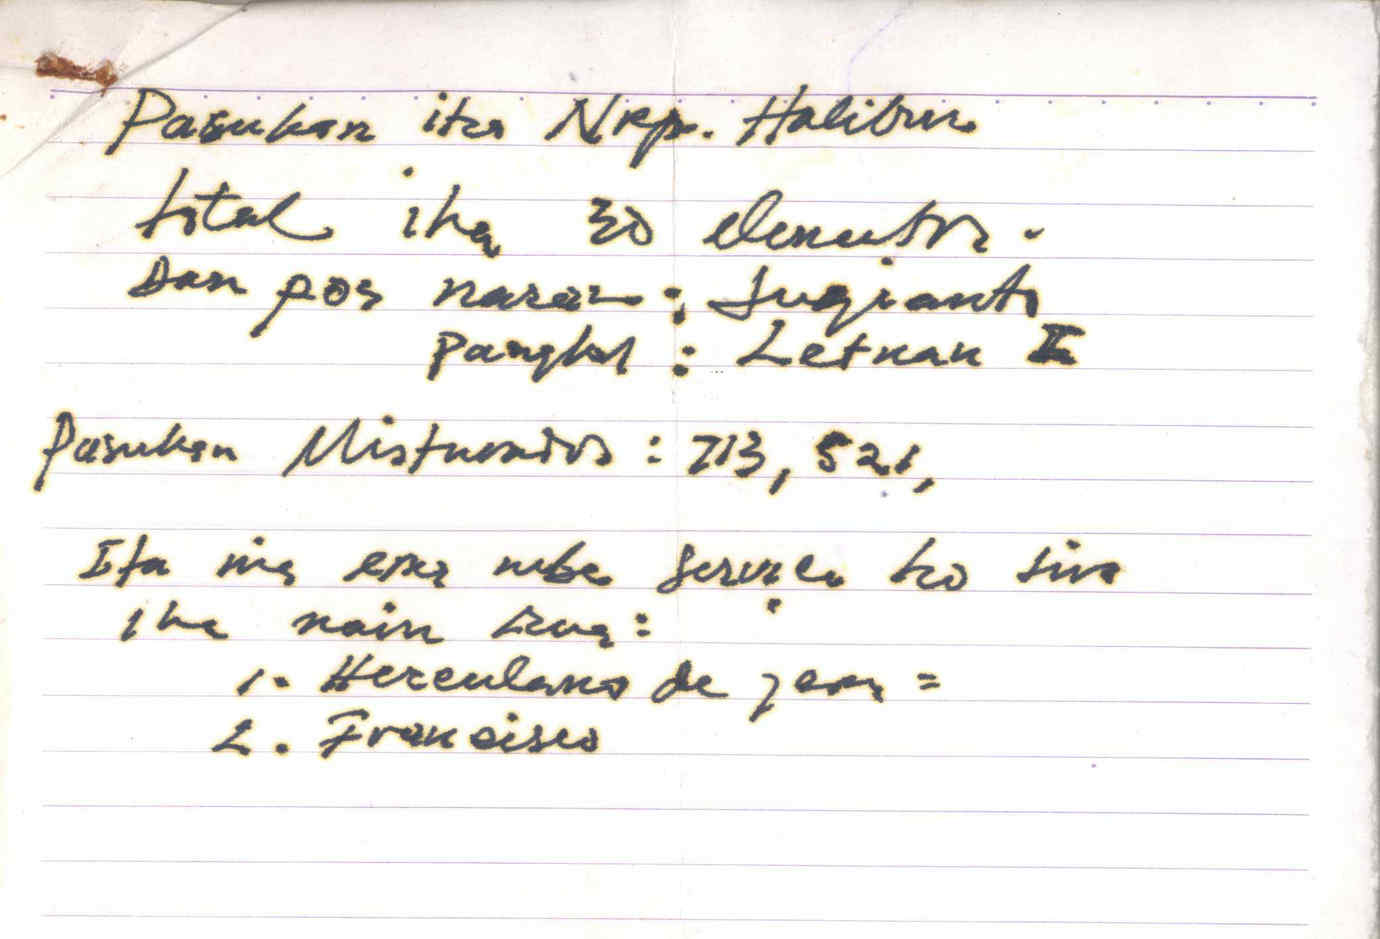 Pasukan iha Nkp. Halibur
total iha 30 elementos.
Dan pos naran : Sugianto
Pangkat : Letnan II
Pasukan Misturados : 713, 521,
Ita nia ema nebe serviçu ho sira
iha nain rua :
1. Herculano de =
2. Francisco